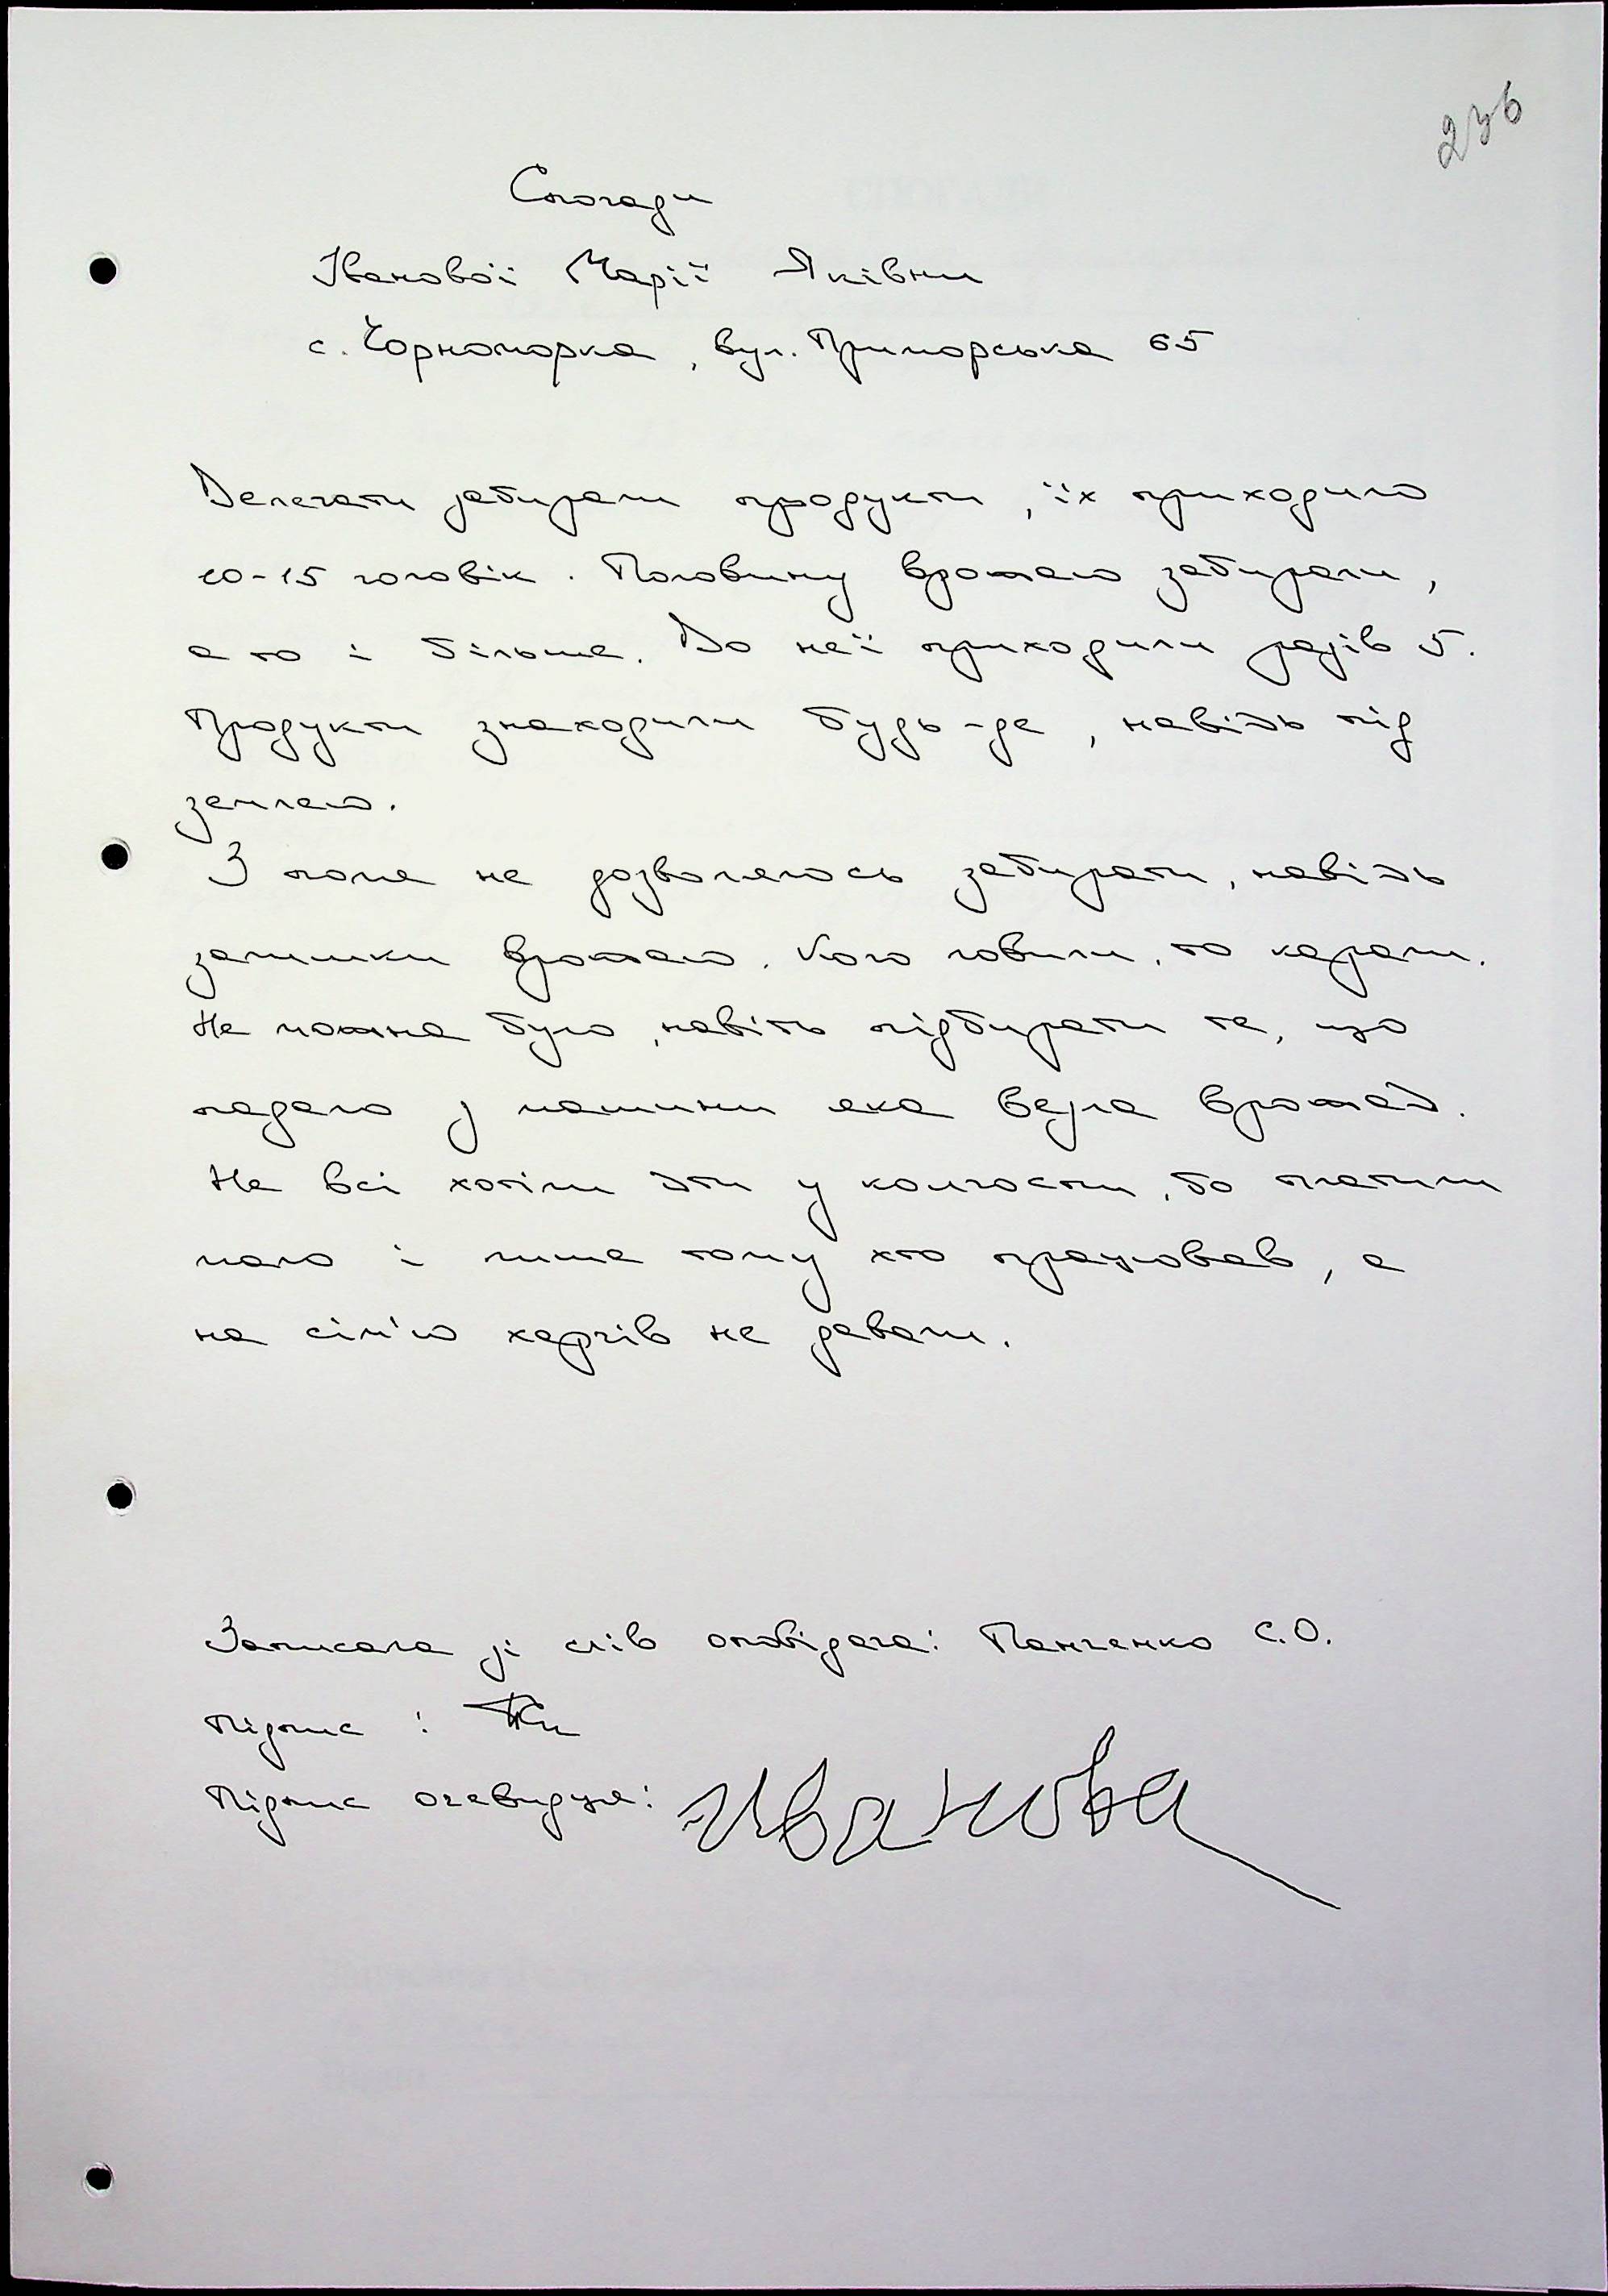 236
Спогади
Іванової Марії Яківни
с. Чорноморка, вул. Приморська 65
Делегати забирали продукти, їх приходило
10-15 чоловік. Половину врожаю забирали,
а то і більше. До неї приходили разів 5.
Продукти знаходили будь-де, навіть під
землею.
З поля не дозволялось забирати, навіть
залишки врожаю. Кого ловили, то карали.
Не можна було, навіть підбирати те, що
падало з машини яка везла врожай.
Не всі хотіли йти у колгоспи, бо платили
мало і лише тому хто працював, а
на сім'ю харчів не давали.
Записала зі слів оповідача: Панченко С.О.
Підпис :
Підпис очевидця: Иванова